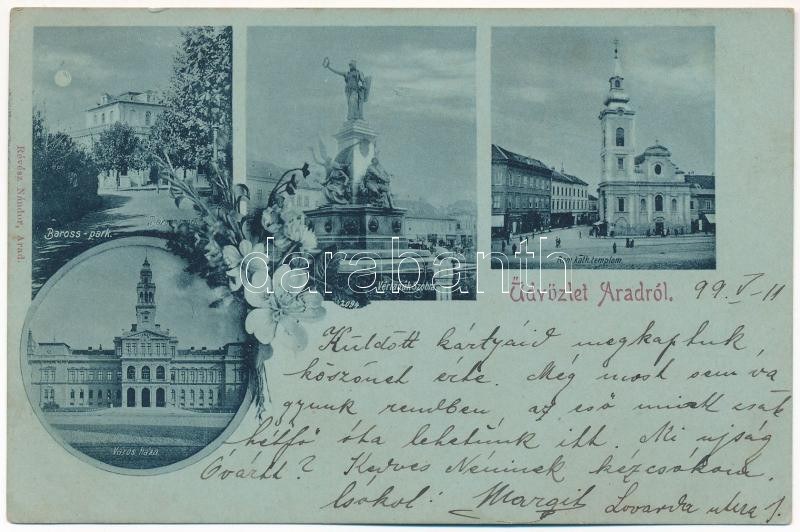 Révész Nándor, Arad.
Baross-park.
Vértanúk szobra
Róm. kath. templom
Városháza.
darabanth
Üdvözlet Aradról. 99 V–11
Küldött kártyáid megkaptuk,
köszönet érte. Még most sem va
gyunk rendben, az eső miatt csak
hétfő óta lehetünk itt. Mi ujság
Óvártt? Kedves Néninek kézcsókom.
Csókol: Margit Lovarda utca